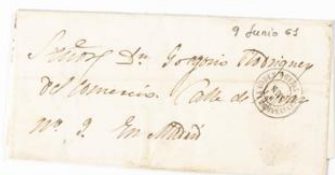 9 Junio 61
Señor Dn Gregorio Rodriguez
Del Comercio. Calle de
nº 2. En Madrid